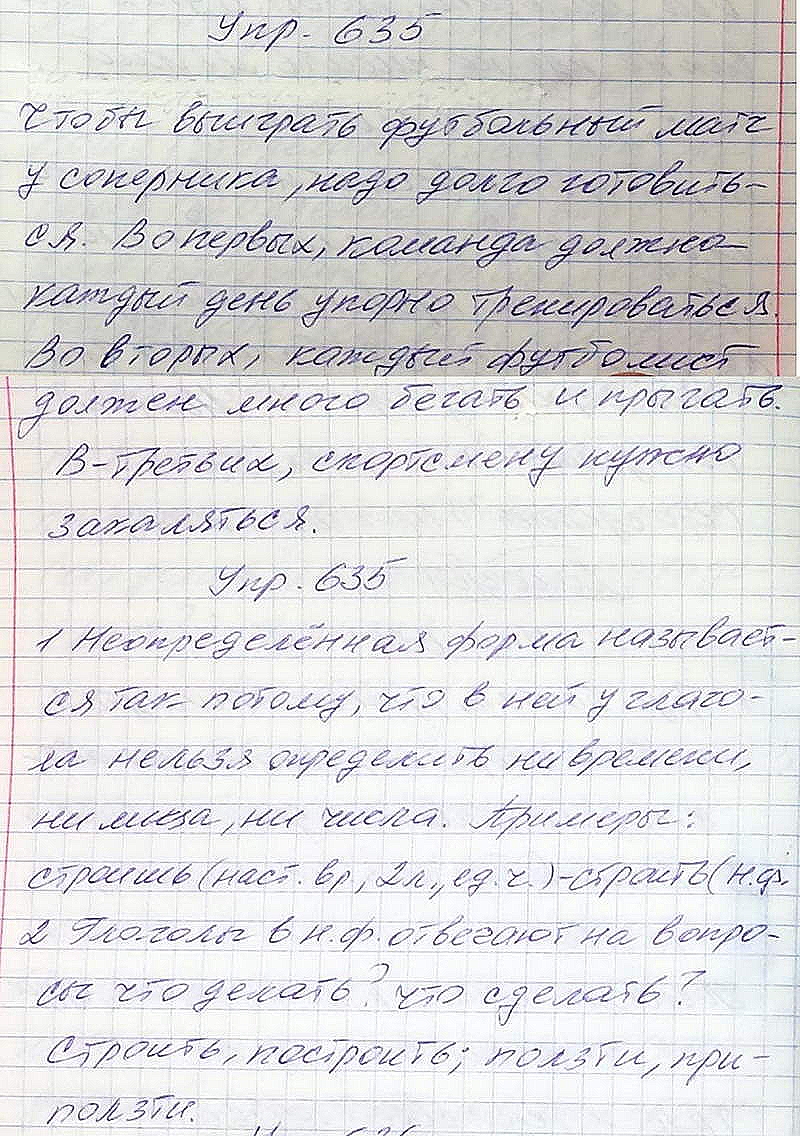 Упр. 635
Чтобы выиграть футбольный матч
у соперника, надо долго готовить-
ся. Во первых, команда должна
каждый день упорно тренироваться.
Во вторых, каждый футболист
должен много бегать и прыгать.
В-третьих, спортсмену нужно
закаляться.
Упр. 635
1 Неопределённая форма называет-
ся так потому, что в ней у глаго-
ла нельзя определить ни времени,
ни лица, ни числа. Примеры:
строишь (наст. вр., 2 л., ед. ч.) - строить (н.ф.
2 Глаголы в н.ф. отвечают на вопро-
сы что делать? что сделать?
Строить, построить; ползти, при-
ползти.